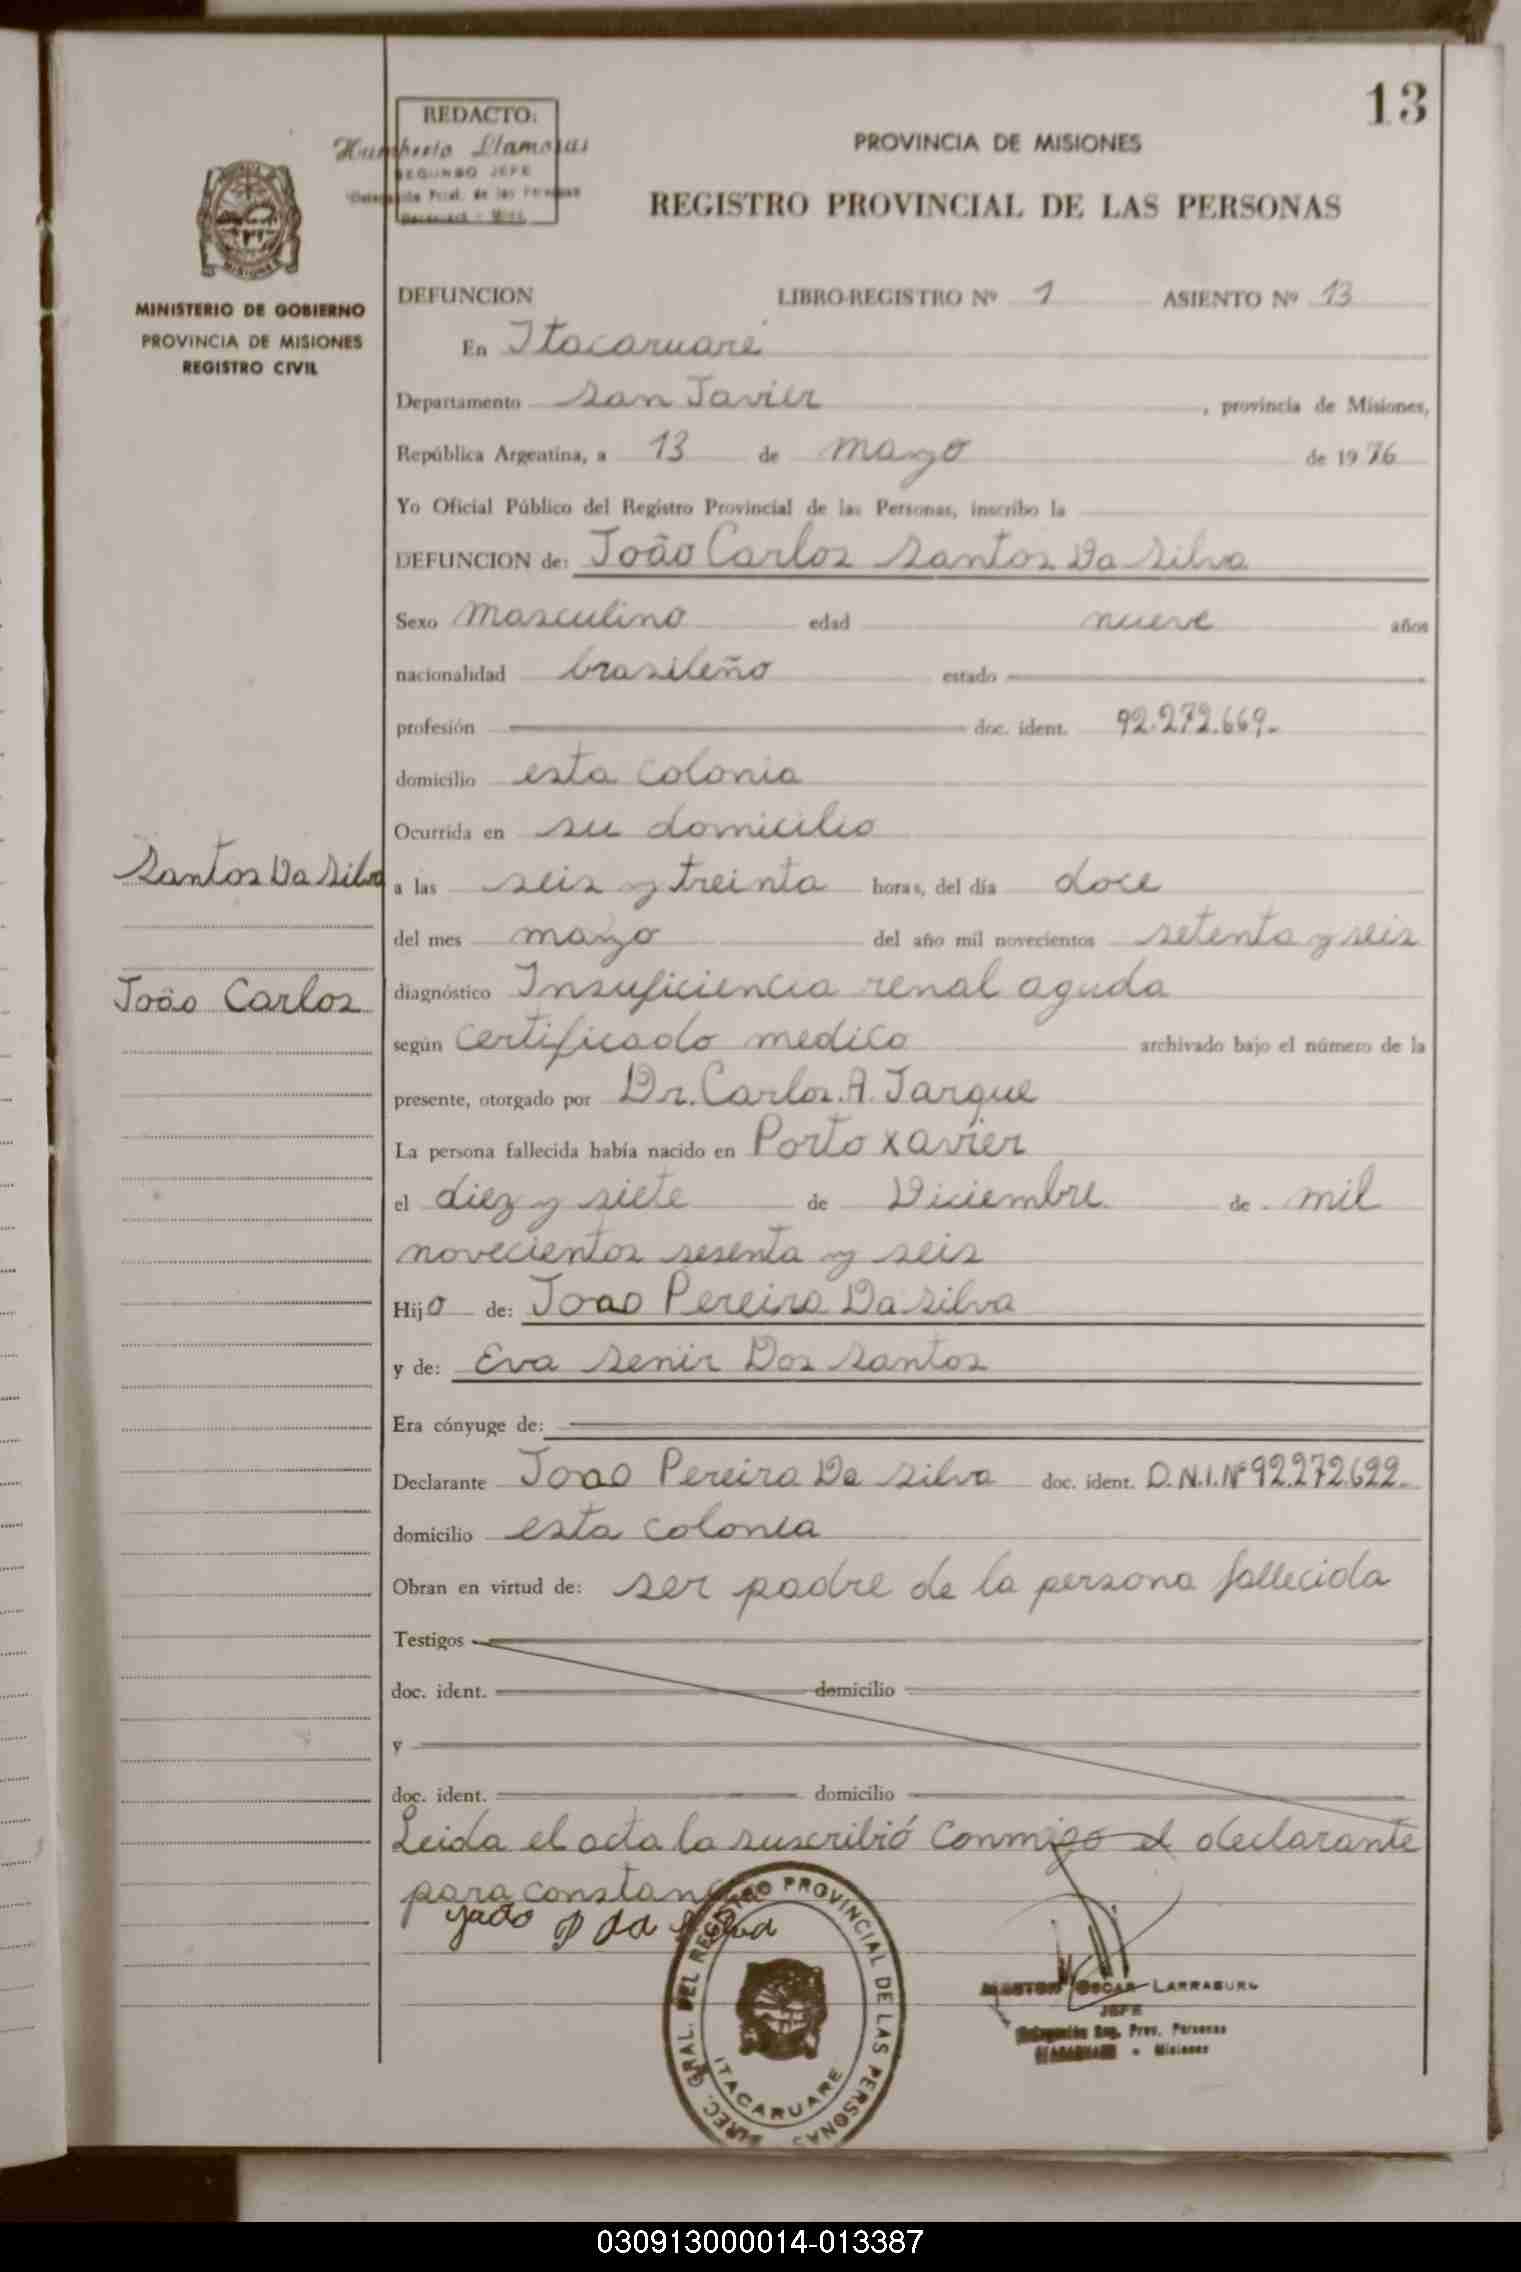 13
REDACTO:
Humberto Llamosas
SEGUNDO JEFE
PROVINCIA DE MISIONES
REGISTRO PROVINCIAL DE LAS PERSONAS
MISIONES
MINISTERIO DE GOBIERNO
PROVINCIA DE MISIONES
REGISTRO CIVIL
DEFUNCION LIBRO-REGISTRO Nº 1 ASIENTO Nº 13
En Itacaruaré
Departamento San Javier, provincia de Misiones,
República Argentina, a 13 de mayo de 1976
Yo Oficial Público del Registro Provincial de las Personas, inscribo la
DEFUNCION de: João Carlos Santos Da Silva
Sexo Masculino edad nueve años
nacionalidad brasileño estado
profesión doc. ident. 92.272.669.-
domicilio esta colonia
Ocurrida en su domicilio
Santos Da Silva
a las seis y treinta horas, del día doce
del mes mayo del año mil novecientos setenta y seis
João Carlos
diagnóstico Insuficiencia renal aguda
según certificado medico archivado bajo el número de la
presente, otorgado por Dr. Carlos. A. Jarque
La persona fallecida había nacido en Porto xavier
el diez y siete de Diciembre de mil
novecientos sesenta y seis
Hijo de: Joao Pereira Da Silva
y de: Eva Senir Dos Santos
Era cónyuge de:
Declarante Joao Pereira Da Silva doc. ident. D.N.I.Nº 92.272.622.-
domicilio esta colonia
Obran en virtud de: ser padre de la persona fallecida
Testigos
doc. ident. domicilio
y
doc. ident. domicilio
Leida el acta la suscribió conmigo el declarante
para constancia
João P da Silva
DIREC. GRAL. DEL REGISTRO PROVINCIAL DE LAS PERSONAS
ITACARUARE
OSCAR LARRABURU
JEFE
Delegación Reg. Prov. Personas
ITACARUARE - Misiones
030913000014-013387